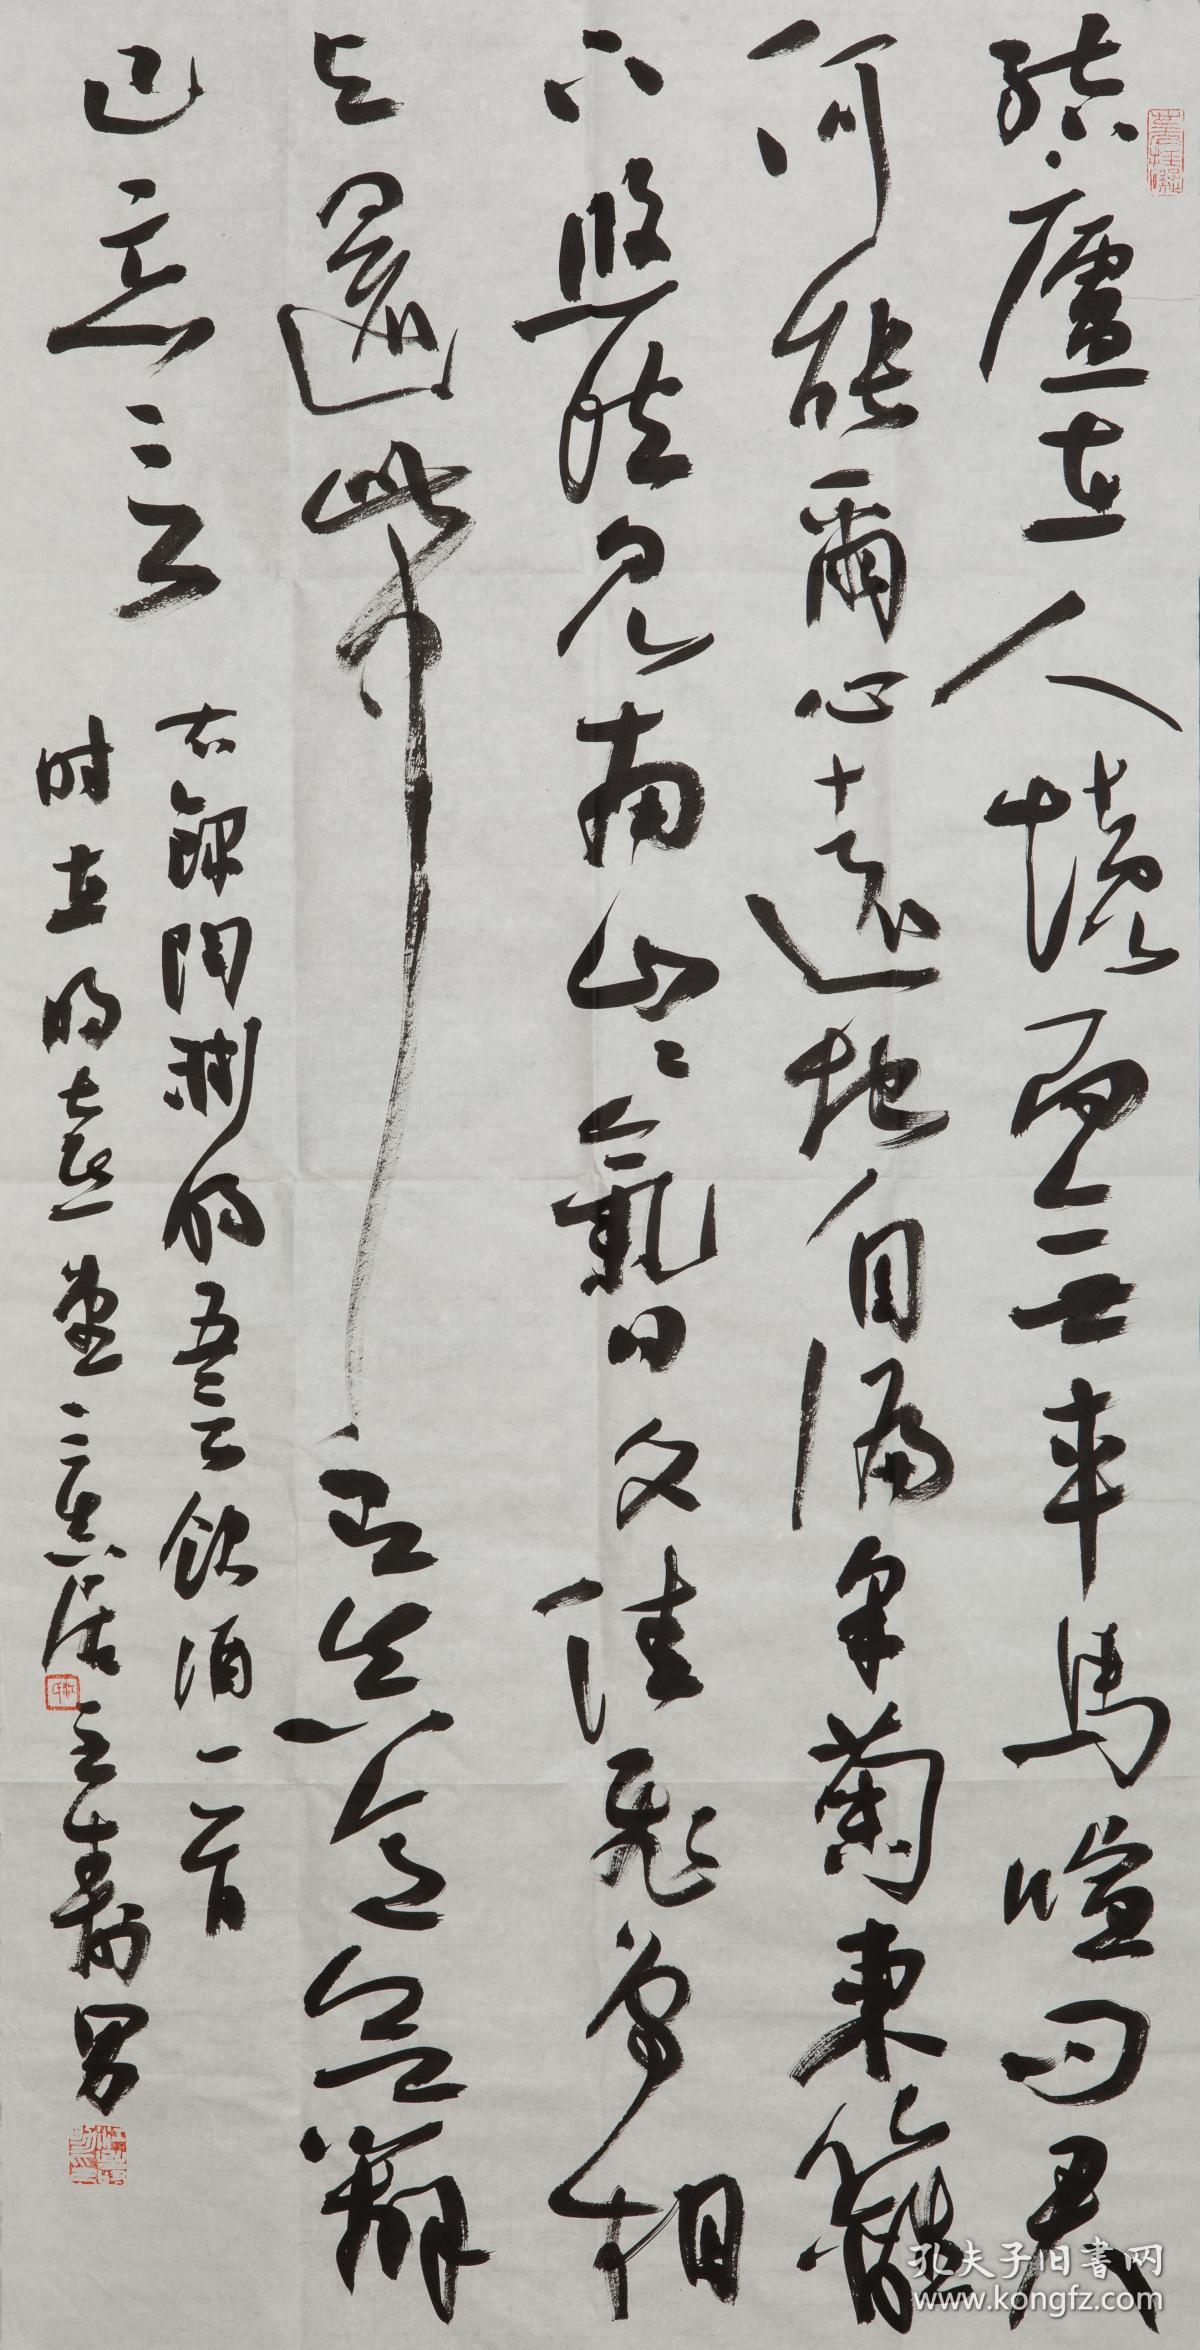 結廬在人境而無車馬喧問君
何能爾心遠地自偏采菊東籬
下悠然見南山〻氣日夕佳飛鳥相
与還此中有真意欲辨
已忘言
右錄陶淵明五言飲酒一首
時在明堂三居主壽男
孔夫子旧书网
www.kongfz.com